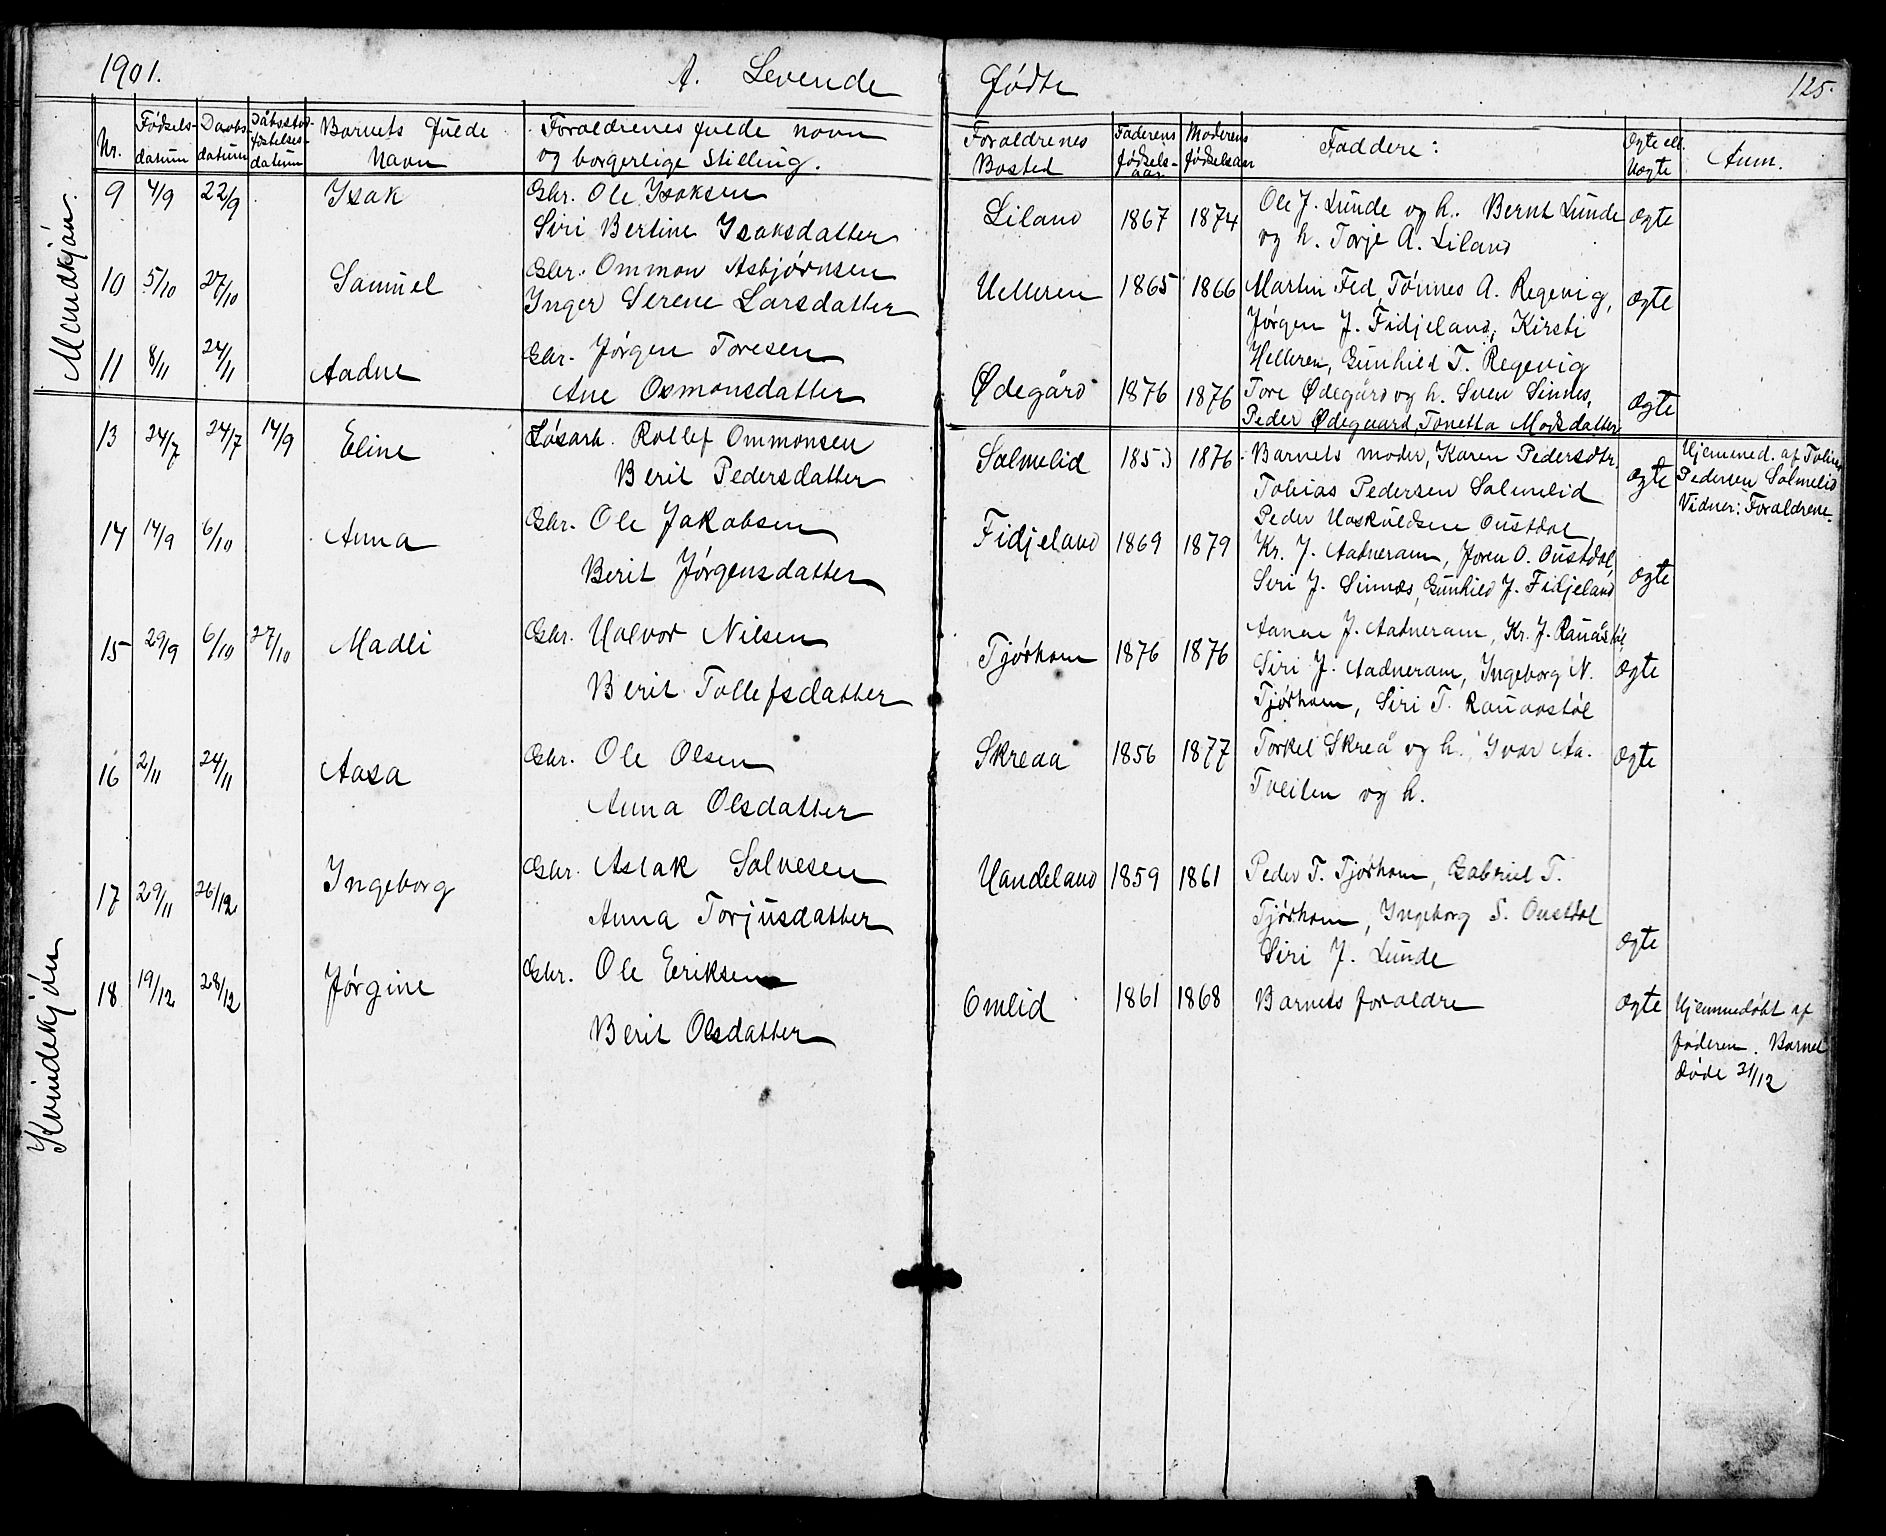 1901. A. Levende Fødte 125.
Nr. Fødsels-datum Daabs-datum Dåbsstadfæstelses-datum Barnets fulde Navn Forældrenes fulde navn og borgerlige Stilling. Forældrenes Bosted Faderens fødselsaar Moderens fødselsaar Faddere: Ægte ell. Uægte Anm.
Mandkjøn.
9 4/9 22/9 Isak Gbr. Ole Isaksen Liland 1867 1874 Ole J. Lunde og h. Bernt Lunde ægte
Siri Bertine Isaksdatter og h. Torje A. Liland
10 5/10 27/10 Samuel Gbr. Ommon Asbjørnsen Helleren 1865 1866 Martin Fed, Tønnes A. Regevig, ægte
Inger Serene Larsdatter Jørgen J. Fidjeland, Kirsti
Helleren, Gunhild T. Regevig
11 8/11 24/11 Aadne Gbr. Jørgen Toresen Ødegård 1876 1876 Tore Ødegård og h. Sven Sinnes, ægte
Ane Osmonsdatter Peder Ødegaard, Tonetta Madsdatter
Kvindekjøn
13 24/7 24/7 14/9 Eline Løsarb. Rollef Ommonsen Solmelid 1853 1876 Barnets moder, Karen Pedersdtr. ægte Hjemmed. af Tobias
Berit Pedersdatter Tobias Pedersen Solmelid Pedersen Solmelid
Vidner: Forældrene.
14 14/9 6/10 Anna Gbr. Ole Jakobsen Fidjeland 1869 1879 Peder Haskuldsen Oustdal, ægte
Berit Jørgensdatter Kr. J. Aadneram, Joren O. Oustdal,
Siri J. Sinnes, Gunhild J. Fidjeland
15 29/9 6/10 27/10 Madli Gbr. Halvor Nilsen Tjørhom 1876 1876 Aanen J. Aadneram, Kr. J. Raunåstøl ægte
Berit Tollefsdatter Siri J. Aadneram, Ingeborg N.
Tjørhom, Siri T. Raunaastøl
16 2/11 24/11 Aasa Gbr. Ole Olsen Skreaa 1856 1877 Torkel Skreå og h. Ivar Aa. ægte
Anna Olsdatter Tveiten og h.
17 29/11 26/12 Ingeborg Gbr. Aslak Salvesen Handeland 1859 1861 Peder T. Tjørhom, Gabriel T. ægte
Anna Torjusdatter Tjørhom, Ingeborg S. Oustdal
Siri J. Lunde
18 19/12 28/12 Jørgine Gbr. Ole Eriksen Omlid 1861 1868 Barnets forældre ægte Hjemmedøbt af
Berit Olsdatter faderen. Barnet
døde 31/12